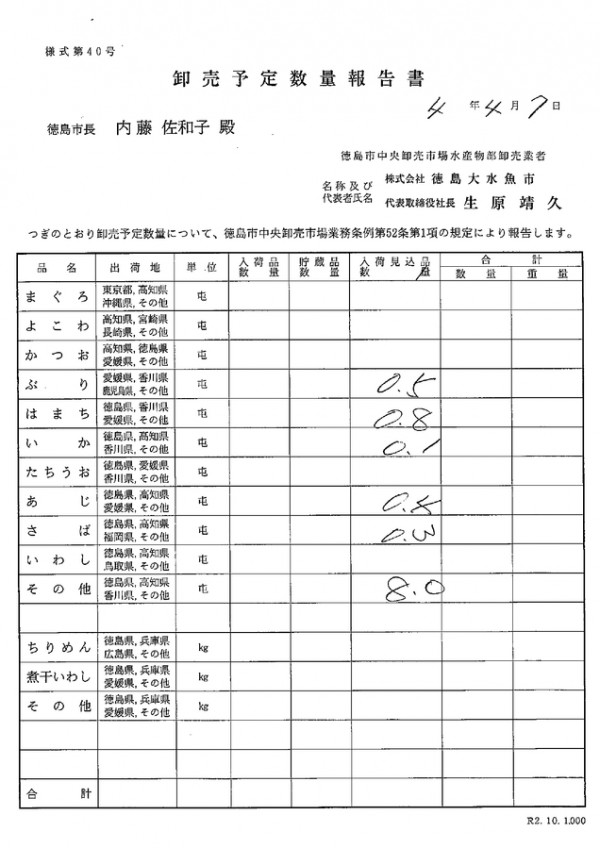 様式第40号
卸売予定数量報告書
4年4月7日
徳島市長 内藤 佐和子 殿
徳島市中央卸売市場水産物部卸売業者
名称及び 株式会社 徳島大水魚市
代表者氏名 代表取締役社長 生原靖久
つぎのとおり卸売予定数量について、徳島市中央卸売市場業務条例第52条第1項の規定により報告します。
品名 出荷地 単位 入荷品数量 貯蔵品数量 入荷見込品数量 合計
数量 重量
まぐろ 東京都, 高知県 沖縄県, その他 屯
よこわ 高知県, 宮崎県 長崎県, その他 屯
かつお 高知県, 徳島県 愛媛県, その他 屯
ぶり 愛媛県, 香川県 鹿児島県, その他 屯 0.5
はまち 徳島県, 香川県 愛媛県, その他 屯 0.8
いか 徳島県, 高知県 香川県, その他 屯 0.1
たちうお 徳島県, 愛媛県 香川県, その他 屯
あじ 徳島県, 高知県 愛媛県, その他 屯
さば 徳島県, 高知県 福岡県, その他 屯 0.3
いわし 徳島県, 高知県 鳥取県, その他 屯
その他 徳島県, 高知県 香川県, その他 屯 8.0
ちりめん 徳島県, 兵庫県 広島県, その他 kg
煮干いわし 徳島県, 兵庫県 愛媛県, その他 kg
その他 徳島県, 兵庫県 愛媛県, その他 kg
合計
R2. 10. 1,000